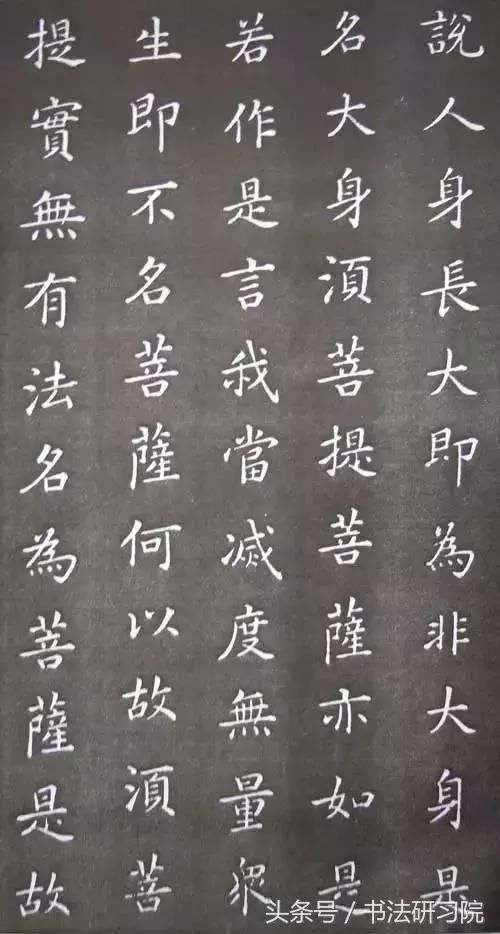 說人身長大即為非大身是
名大身須菩提菩薩亦如是
若作是言我當滅度無量眾
生即不名菩薩何以故須菩
提實無有法名為菩薩是故
头条号／书法研习院